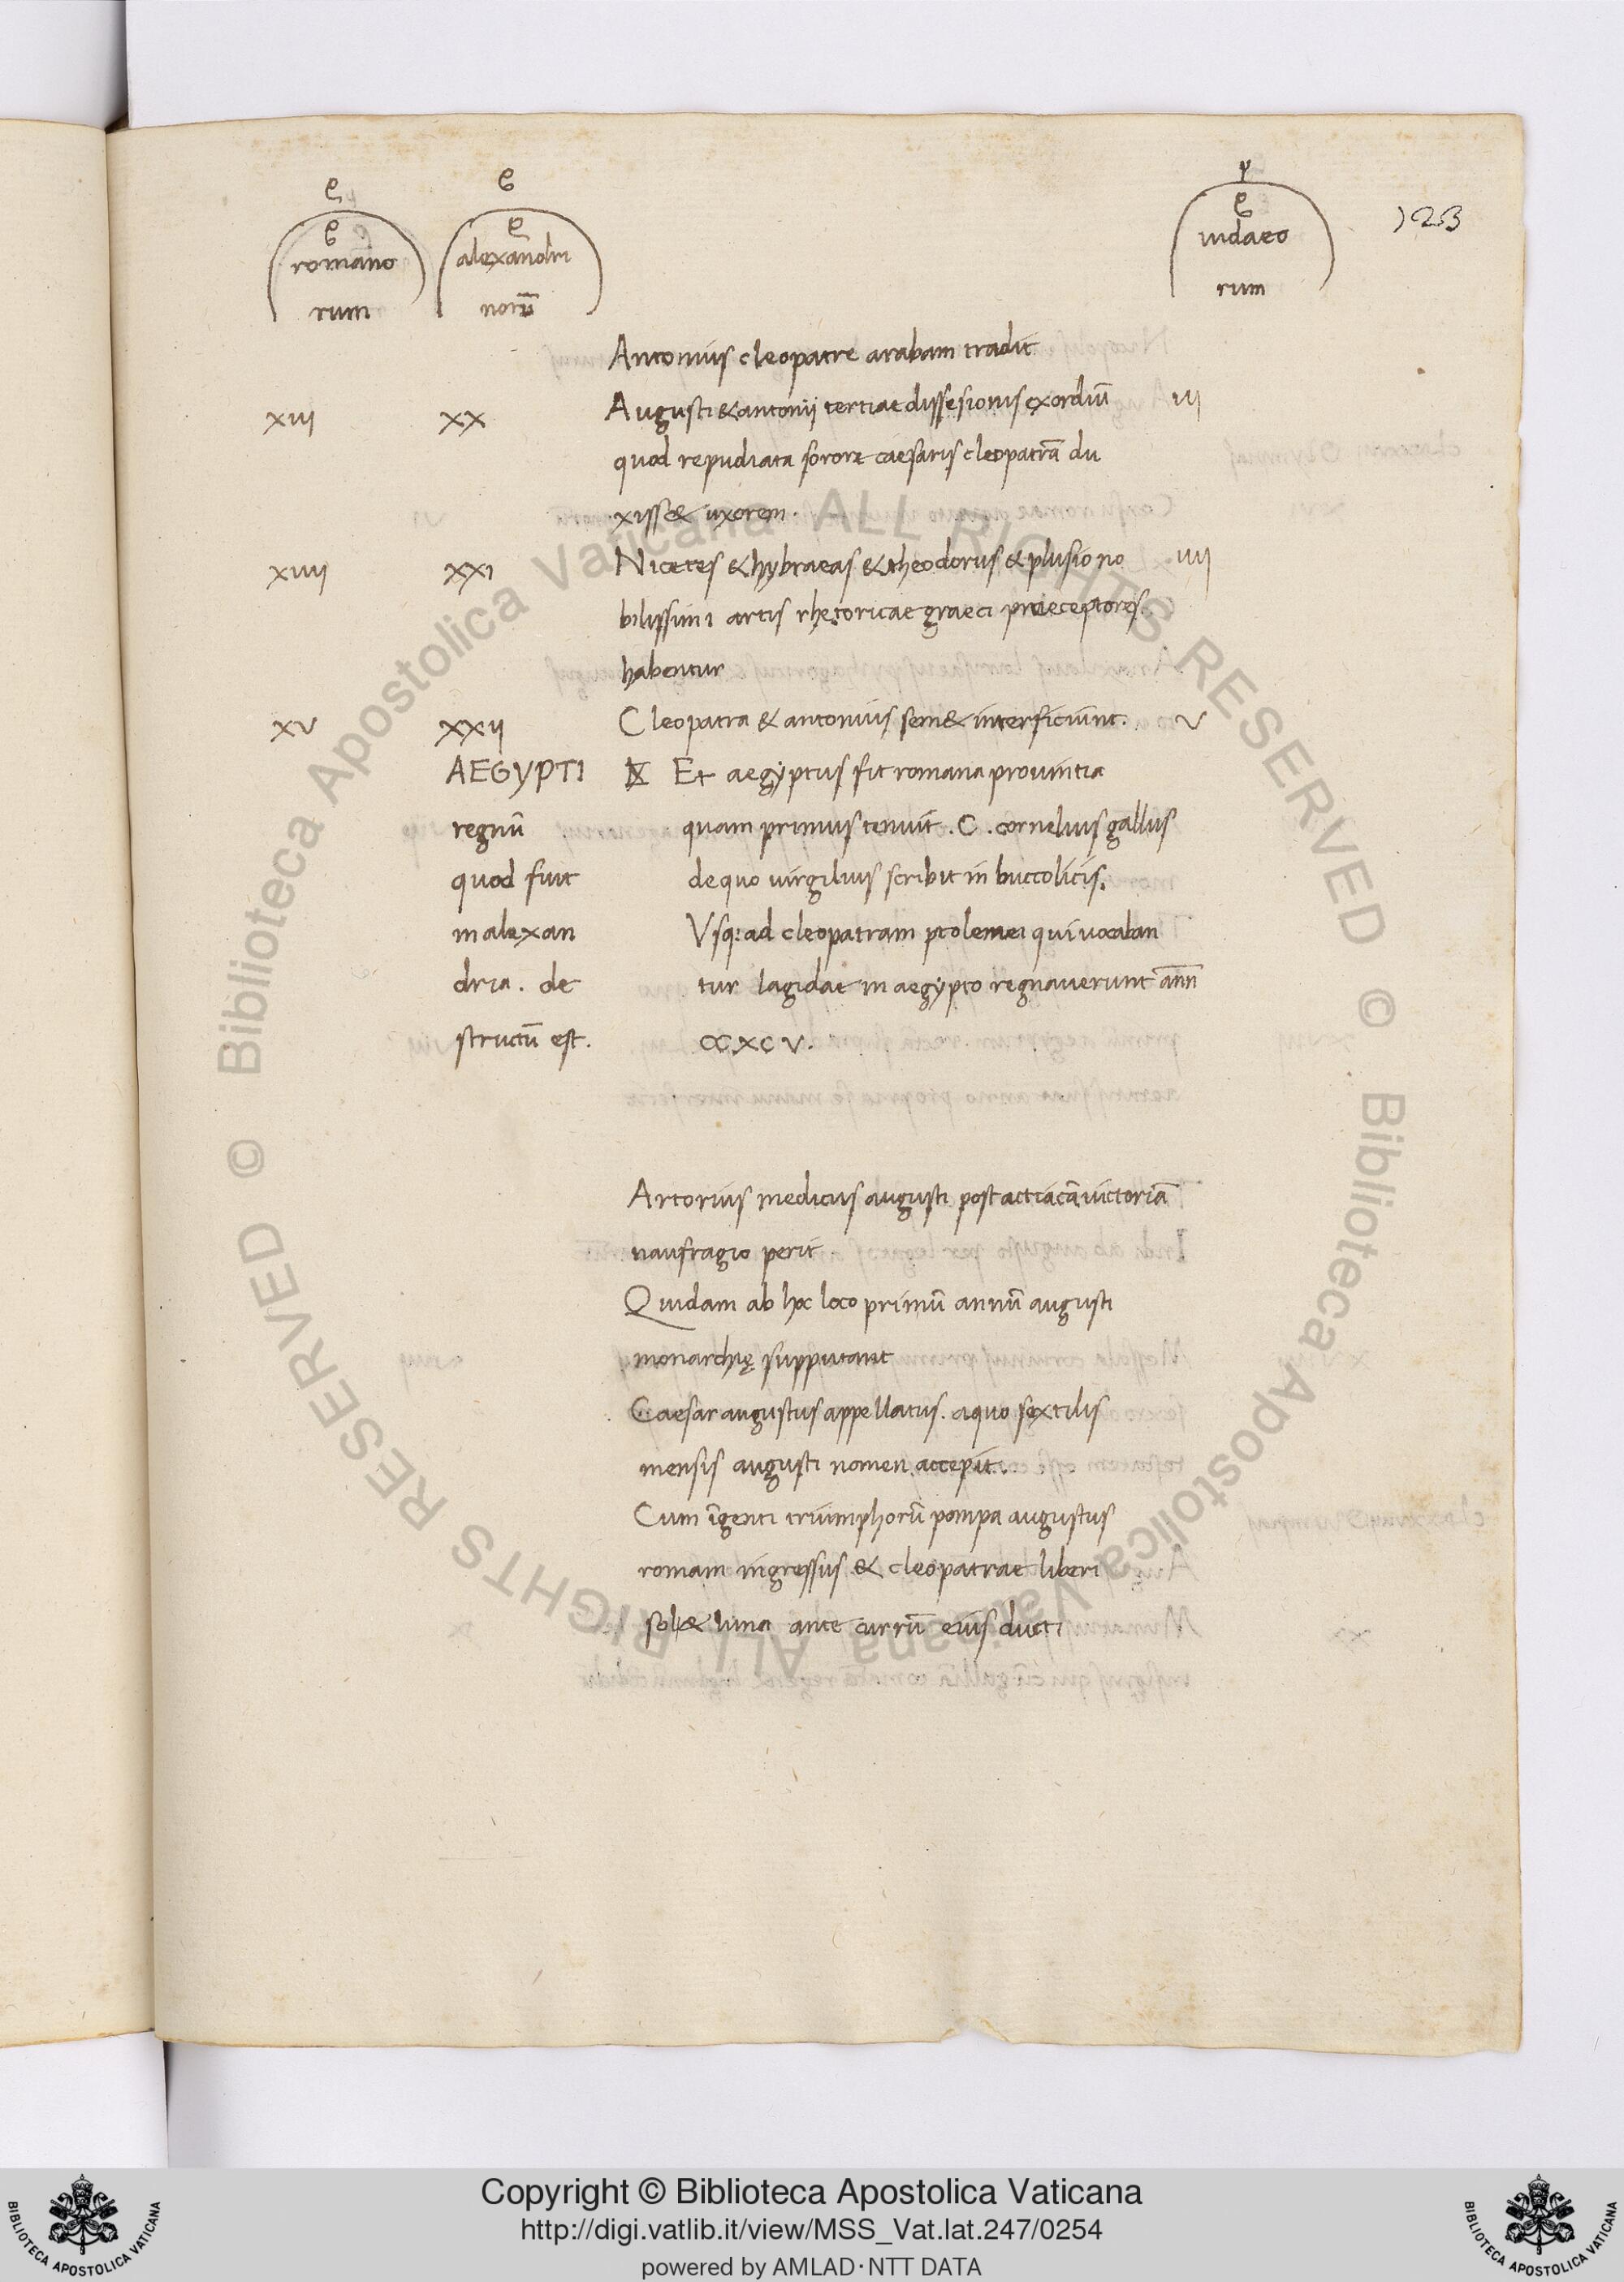 123
romano
rum
alexandri
norū
iudaeo
rum
Antonius cleopatre arabam tradit
xiii xx Augusti & antonij tertiae dissesionis exordiū iii
quod repudiata sorore caesaris cleopatrā du
xiss& uxorem.
xiiii xxi Nicetes & hybraeas & theodorus & plusio no iiii
bilissimi artis rhetoricae graeci praeceptores.
habentur
xv xxii Cleopatra & antonius sem& interficiunt. v
AEGYPTI Et aegyptus fit romana prouintia
regnū quam primus tenuit . C . cornelius gallus
quod fuit de quo uirgilius scribit in buccolicis.
in alexan Vsq: ad cleopatram ptolemei qui uocaban
dria . de tur lagidae in aegypto regnauerunt ann̄
structū est. CCXCV.
Artorius medicus augusti post actiacā uictoriā
naufragio perit
Quidam ab hoc loco primū annū augusti
monarchię supputant
Caesar augustus appellatus. aquo sextilis
mensis augusti nomen accepit.
Cum īgenti triumphorū pompa augustus
romam ingressus & cleopatrae liberi
sol & luna ante currū eius ducti
Biblioteca Apostolica Vaticana ALL RIGHTS RESERVED ©
Biblioteca Apostolica Vaticana ALL RIGHTS RESERVED ©
BIBLIOTECA APOSTOLICA VATICANA
Copyright © Biblioteca Apostolica Vaticana
http://digi.vatlib.it/view/MSS_Vat.lat.247/0254
powered by AMLAD·NTT DATA
BIBLIOTECA APOSTOLICA VATICANA